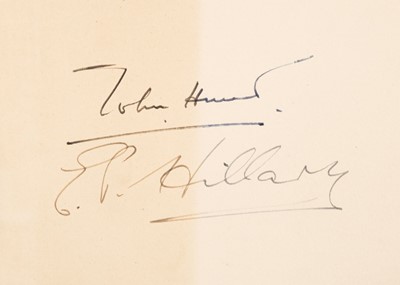 John Hunt.
E.P. Hillary